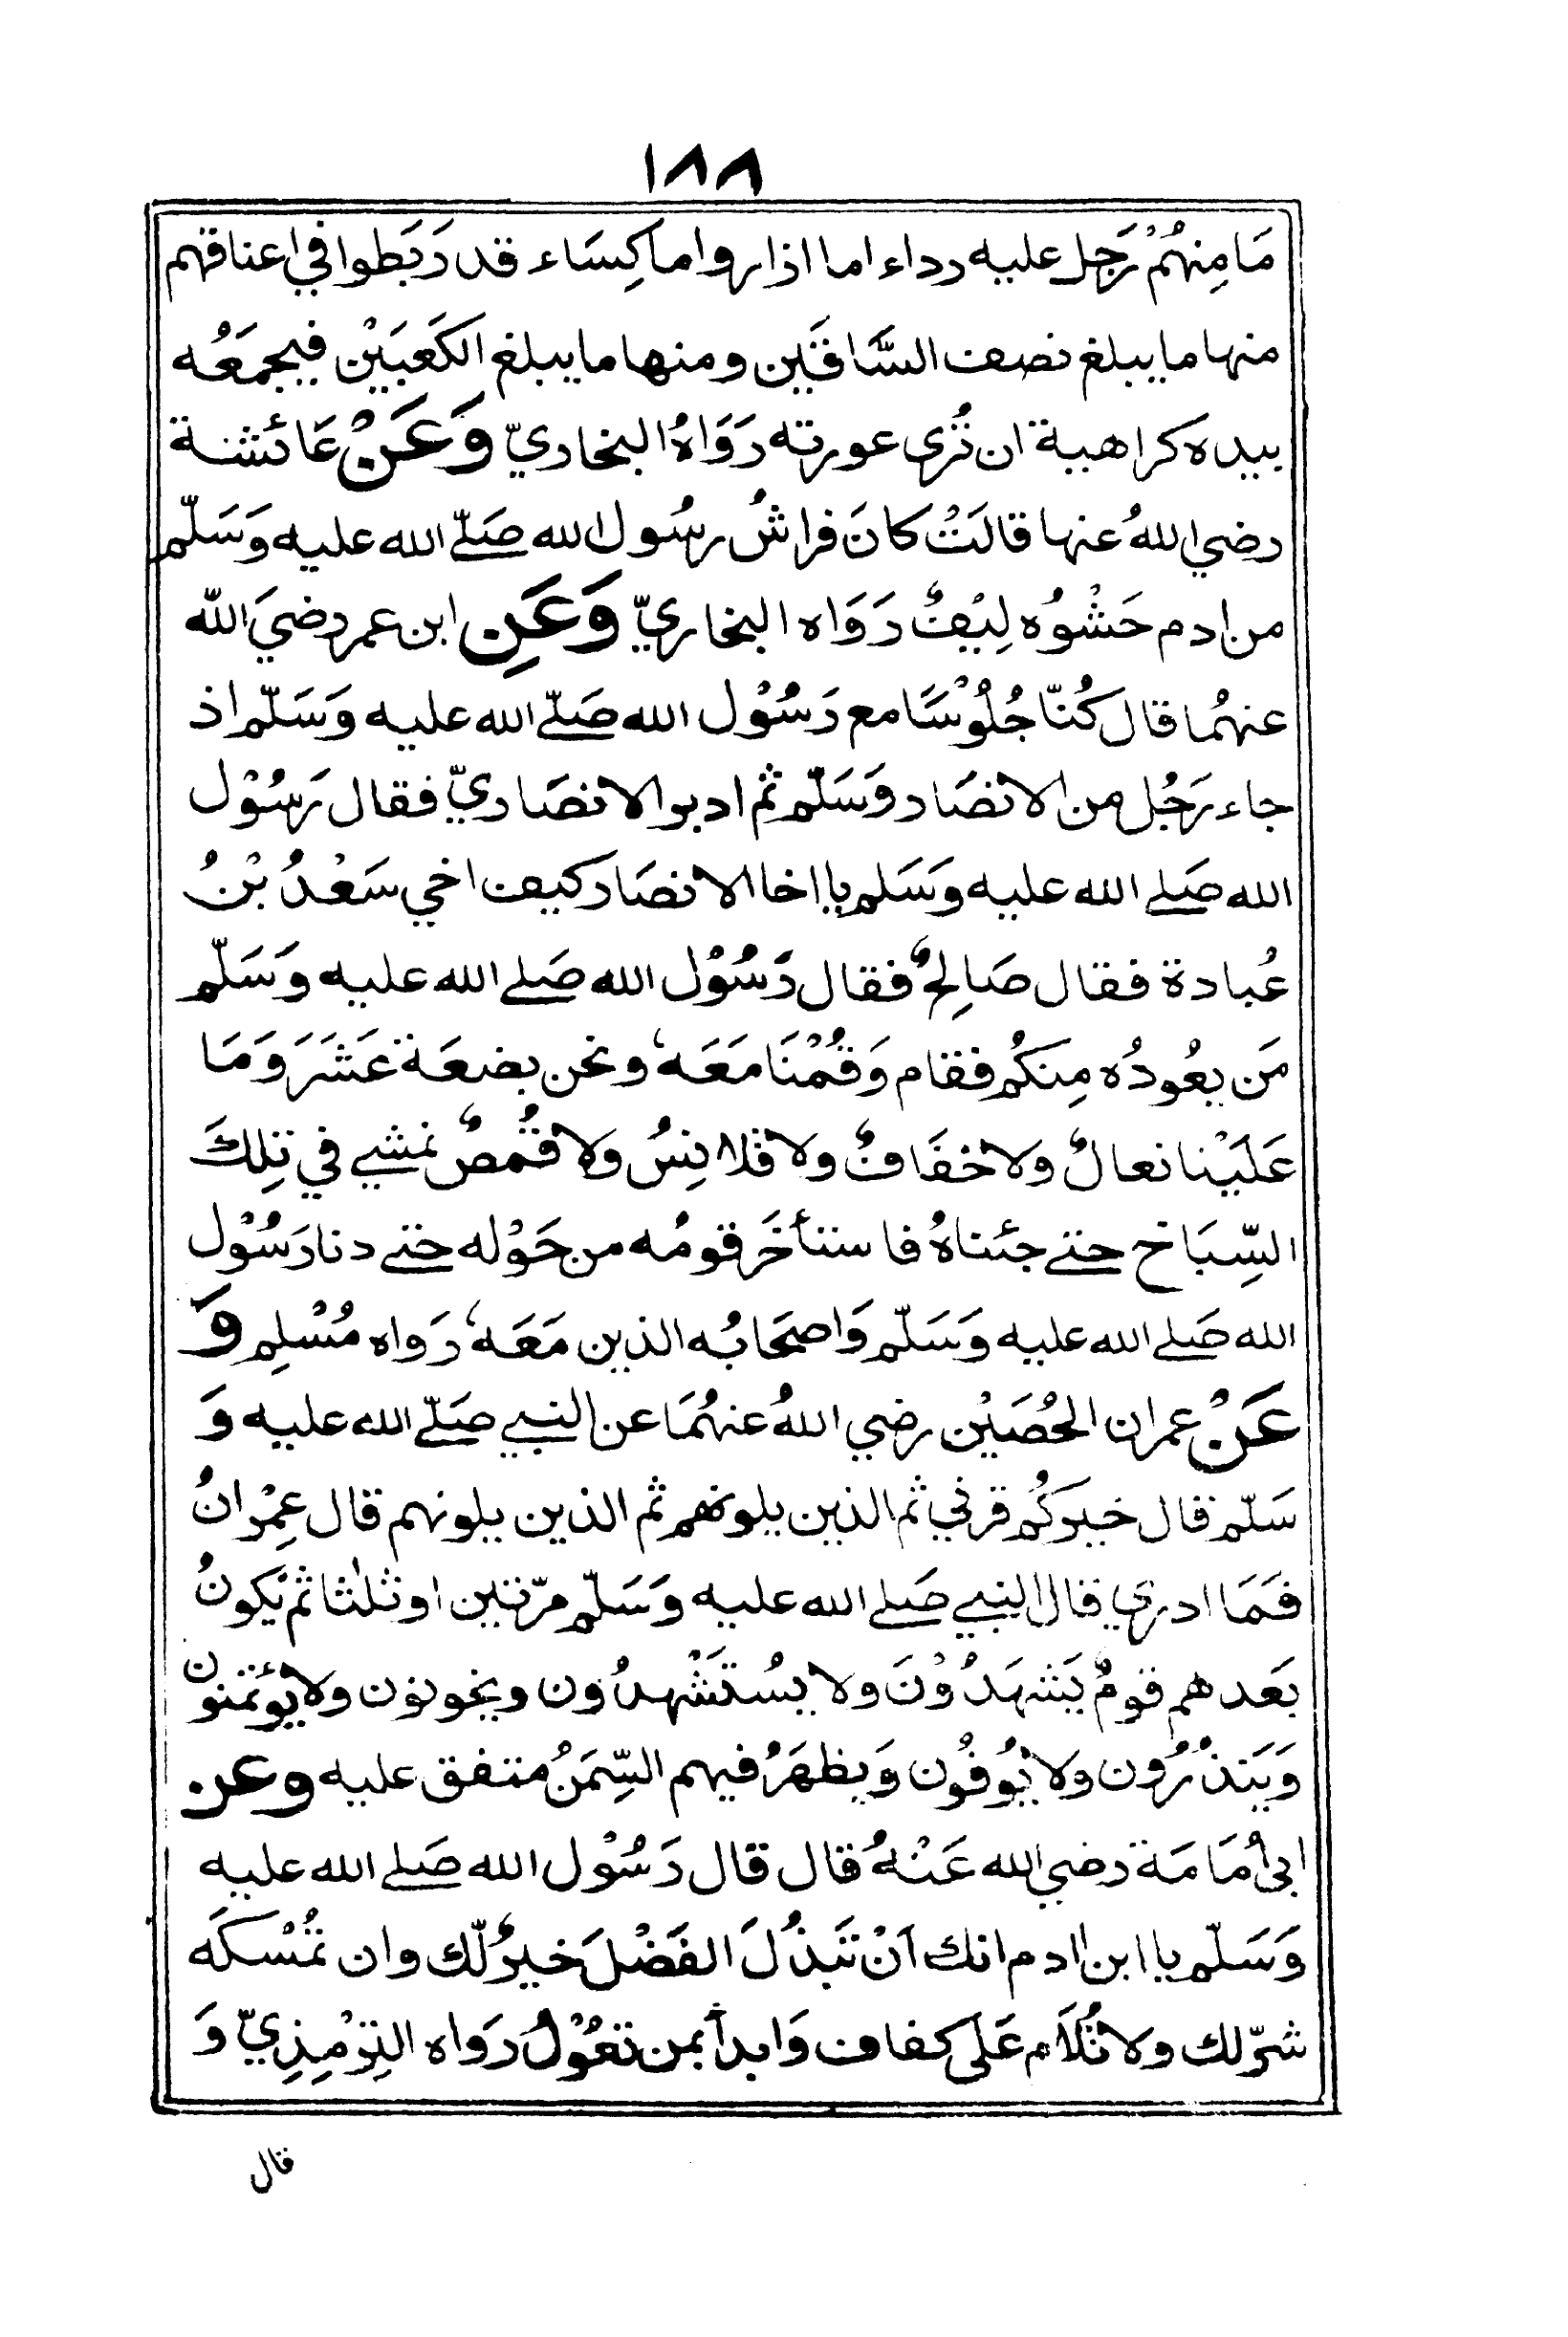 ١٨٨
مَا مِنهُمْ رَجل عليه رداء اما ازار واما كِسَاء قد رَبَطوا في اعناقهم
منها ما يبلغ نصف السَّاقَين ومنها ما يبلغ الكَعبَيْن فيجمَعُه
بيده كراهية ان تُرى عورته رَوَاهُ البخاريّ وَعَنْ عَائشة
رضي اللهُ عنها قالَتْ كانَ فراشُ رسُول الله صَلّى الله عليه وَسَلّم
من ادم حَشْوُه لِيْفٌ رَوَاه البخاريّ وَعَنِ ابن عمر رضيَ الله
عنهُما قال كُنّا جُلُوْسًا مع رَسُوْل الله صَلّى الله عليه وَسَلّم اذ
جاء رَجُل من الانصَار وَسَلّم ثم ادبر الانصَاريّ فقال رَسُوْل
الله صَلى الله عليه وَسَلم يا اخا الانصَار كيف اخي سَعْدُ بْنُ
عُبادة فقال صَالِحٌ فقال رَسُوْل الله صَلى الله عليه وَسَلّم
مَن يعُودُه مِنكُم فقام وَقُمْنَا مَعَهٗ ونحن بضعَة عَشَرَ وَمَا
عَلَيْنا نعالٌ ولا خفَافٌ ولا قلانِسُ ولا قُمصٌ نمشي في تِلكَ
السِّبَاخ حتى جئناهُ فاستأخَر قومُه من حَوْله حتى دنا رَسُوْل
الله صَلى الله عليه وَسَلّم وَاصحَابُه الذين مَعَهٗ رَواه مُسْلِم وَ
عَنْ عمران الحُصَيْن رضي اللهُ عنهُمَا عن النبي صَلّى الله عليه وَ
سَلّم قال خيركُم قرني ثم الذين يلونهم ثم الذين يلونهم قال عِمْرانُ
فَمَا ادري قال النبي صَلى الله عليه وَسَلّم مرّتين او ثلٰثا ثم يَكونُ
بَعدهم قومٌ يَشهَدُوْنَ ولا يُستَشْهدُون ويخونون ولا يؤتمنون
وَيَنذُرُون ولا يُوفُون وَيظهَرُ فيهم السِّمَنُ متفق عليه وعن
ابى أُمَامَة رضي الله عَنْهُ قال قال رَسُوْل الله صَلى الله عليه
وَسَلّم يا ابن ادم انك اَنْ تَبذُلَ الفَضْلَ خيرٌ لّك وان تُمْسكَه
شرّ لك ولا تُلَام عَلَى كفاف وَابدأ بمن تعُوْلُ رَواه التِرْمِذِيّ وَ
قال